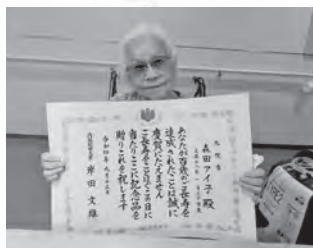 森田アイ子殿
あなたが百歳のご長寿を
達成されたことは誠に
慶賀にたえません
ご長寿をことほぐこの日に
当たりここに記念品を
贈りこれを祝します
令和四年九月十五日
内閣総理大臣 岸田文雄